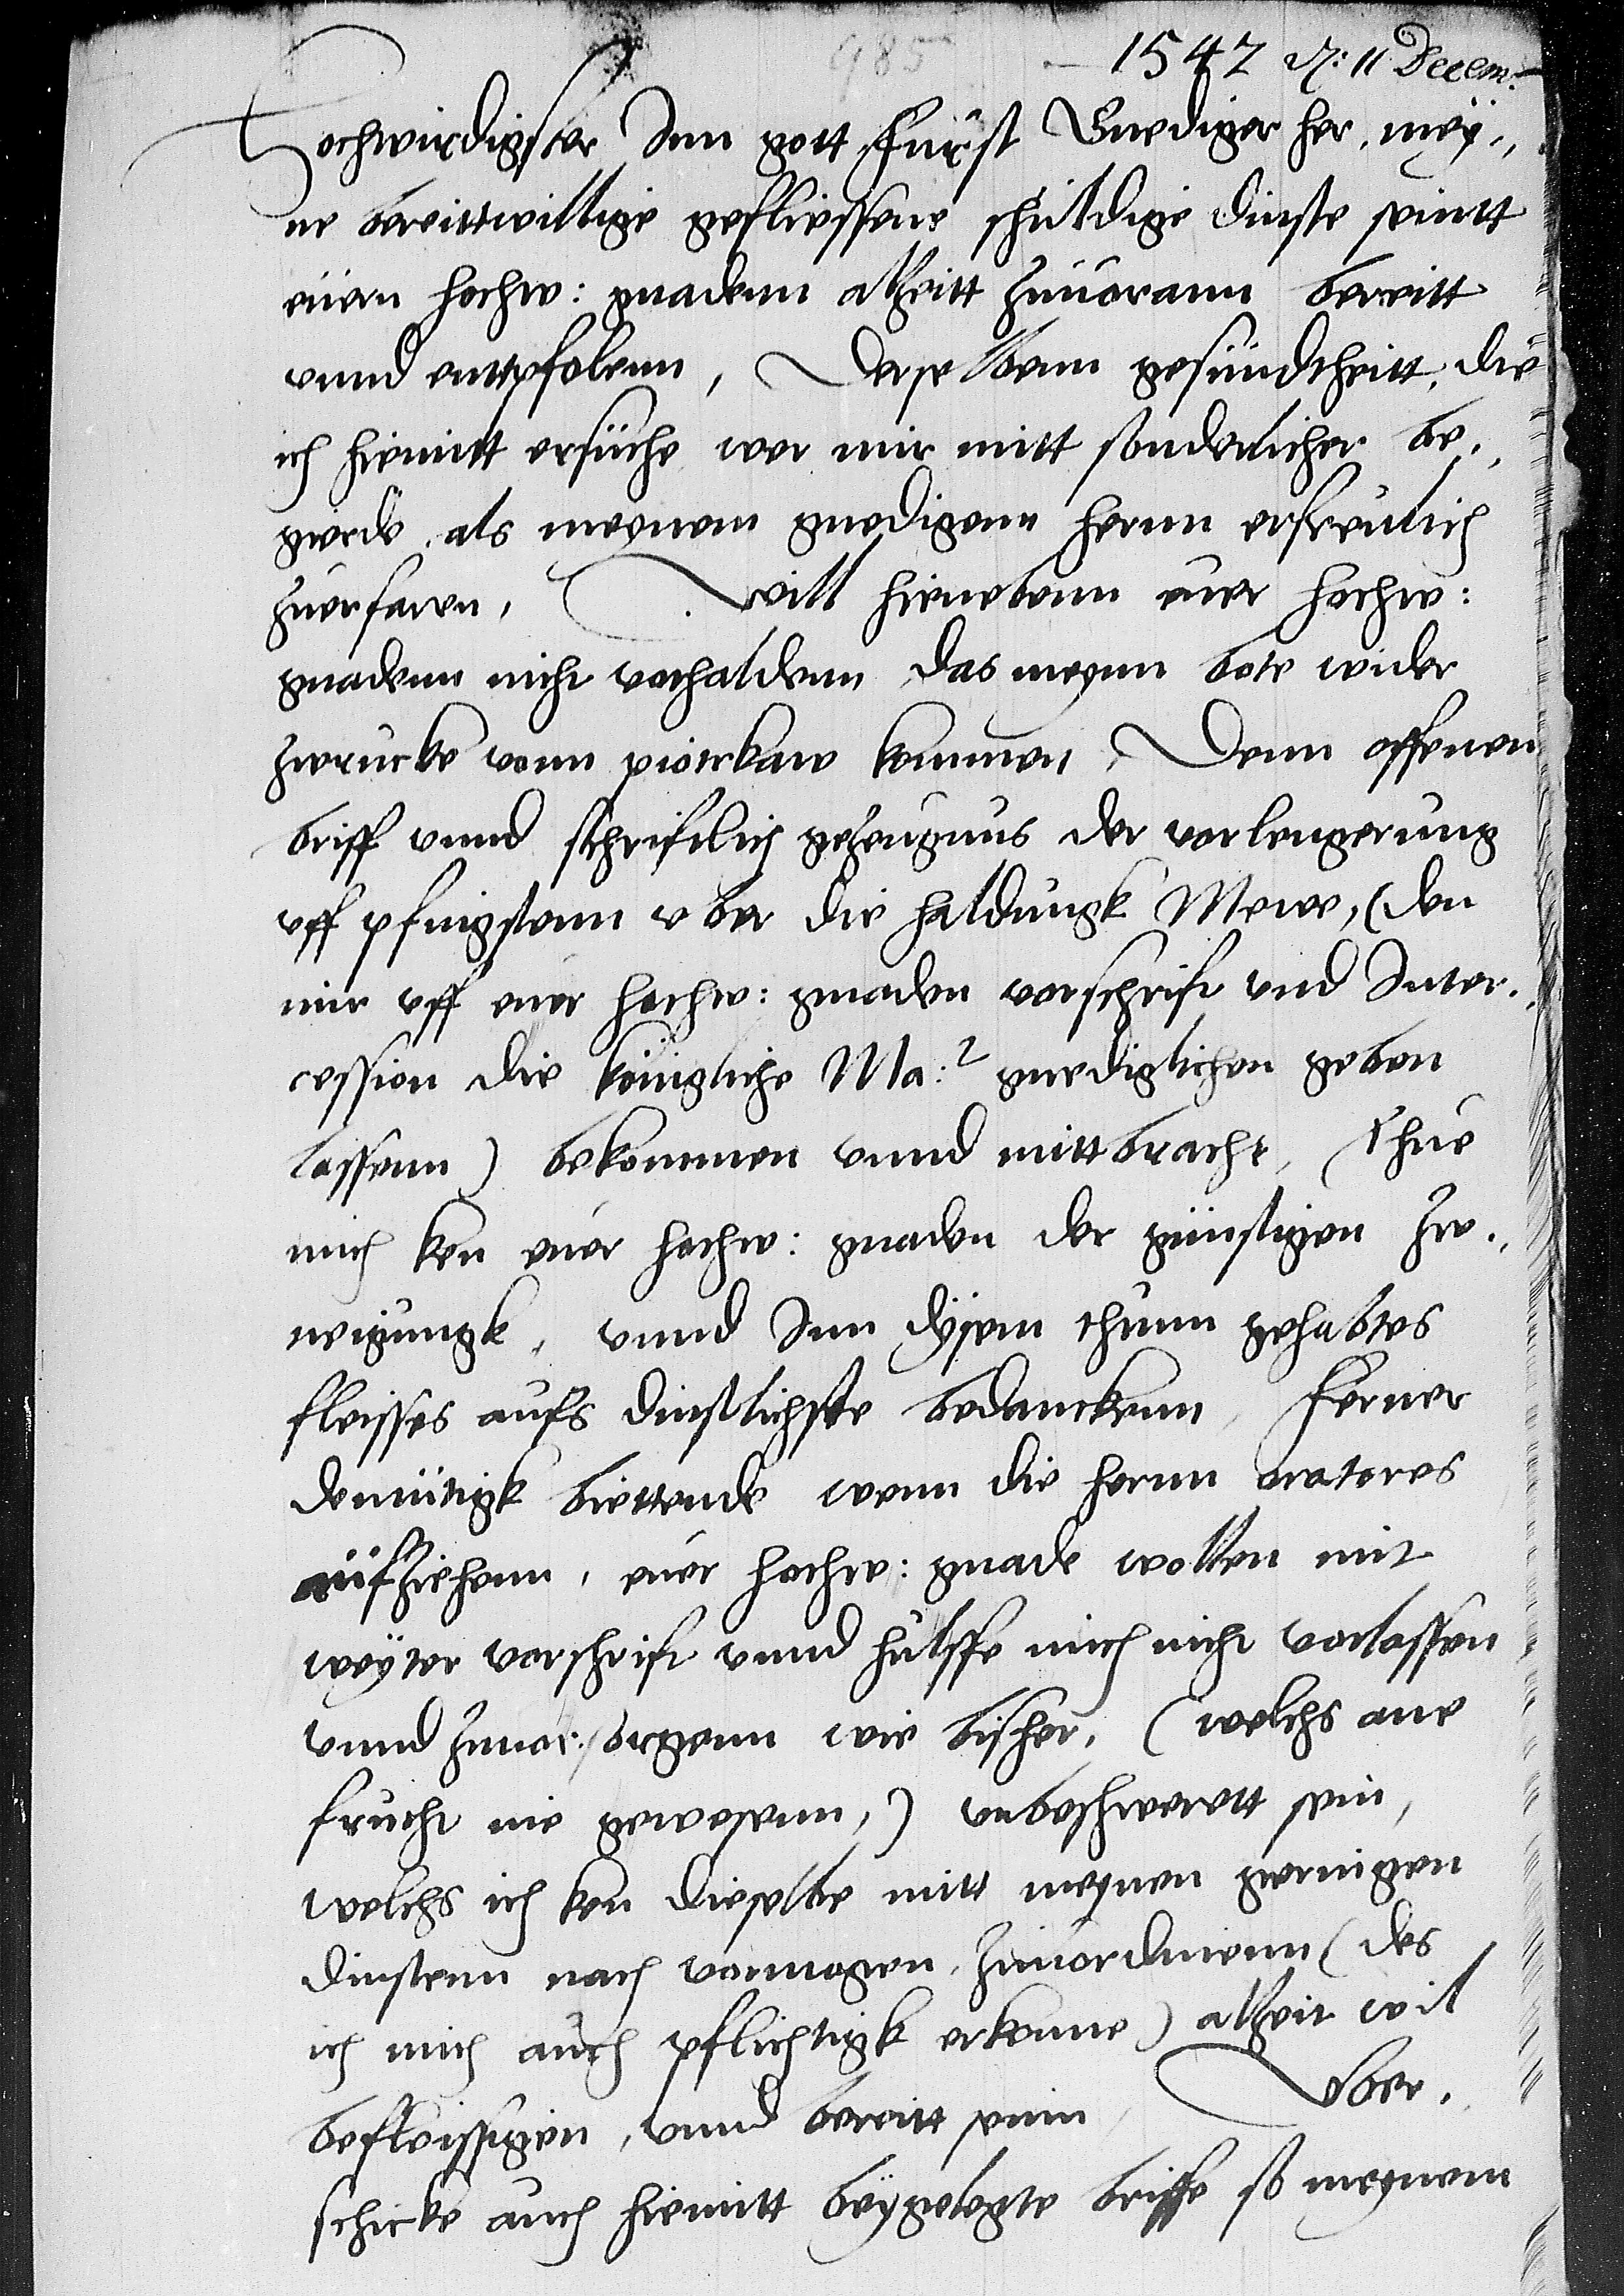 985 - 1542 d: 11 Decem:
Hochwirdigster Inn gott Furst Gnediger her, mey„
ne bereittwillige gefliessene schuldige dinste seintt
euern hochw: gnadenn altzeitt zuuorann bereitt
vnnd entpfolenn, Derselbenn gesundtheitt, die
ich hiemitt ersuche wer mir mitt sonderlicher be„
girde, als meynem gnedigenn hernn erfreulich
zuerfaren, will hienebenn euer hochw:
gnadenn nicht vorhaldenn das meynn bote wider
zwrucke vonn piotrkaw kommen, Denn offenen
briff vnnd schriftlich gezeugnus der vorlengerung
vff pfingstenn vber die haldungk Mewe, (den
mir vff euer hochw: gnaden vorschrift vnd Inter„
cession die königliche Ma:t gnediglichen geben
lassenn) bekommen vnnd mittbracht, Thue
mich ken euer hochw: gnaden der günstigen zw„
neigungk, vnnd Inn dysem thunn gehabtes
fleisses aufs dinstlichste bedanckenn, Ferner
demütigk biettende wenn die hernn oratores
aüfziehenn, euer hochw: gnade wollen mit
weyter vorschrift vnnd hulffe mich nicht vorlassen
vnnd zuuor: sorgenn wie bisher, (welchs ane
frucht nie gewesenn,) vnbeschwerett sein,
welchs ich ken dieselbe mitt meynen geringen
dinstenn nach vormogen, zuuordinenn (des
ich mich auch pflichtigk erkenne) altzeit wil
befleissigen, vnnd bereitt seinn, Vber„
schicke auch hiemitt beygelegte briffe so meynem